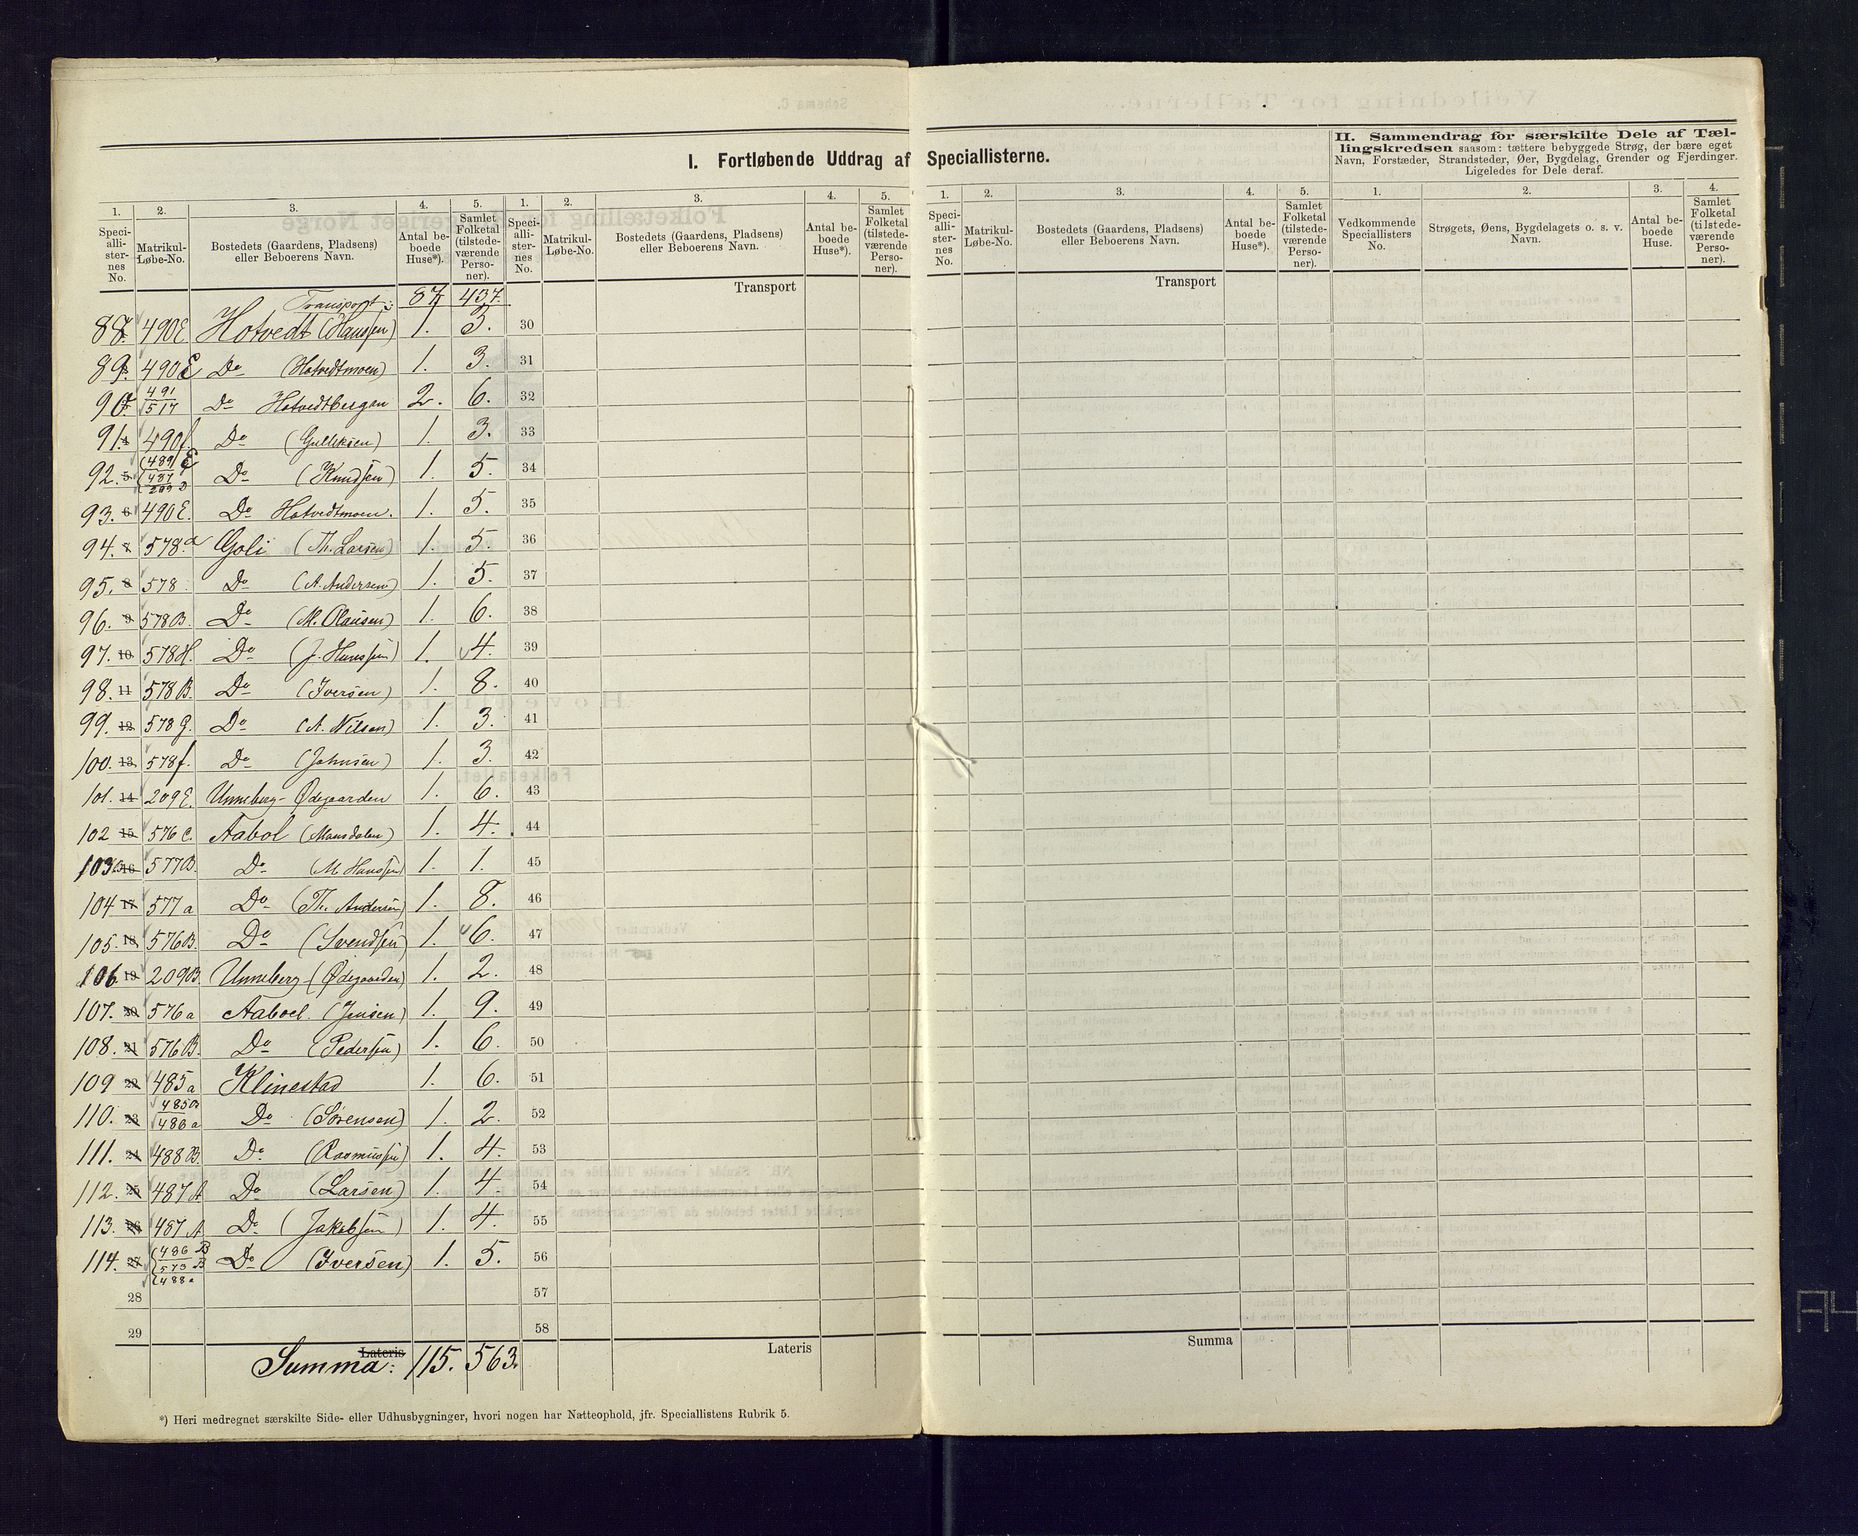 I. Fortløbende Uddrag af Speciallisterne.
II. Sammendrag for særskilte Dele af Tæl-
lingskredsen saasom: tættere bebyggede Strøg, der bære eget
Navn, Forstæder, Strandsteder, Øer, Bygdelag, Grender og Fjerdinger.
Ligeledes for Dele deraf.
1. 2. 3. 4. 5. 1. 2. 3. 4. 5. 1. 2. 3. 4. 5. 1. 2. 3. 4.
Speci-allister-nes No. Matrikul-Løbe-No. Bostedets (Gaardens, Pladsens) eller Beboerens Navn. Antal be-boede Huse*). Samlet Folketal (tilstede-værende Perso-ner).
Speci-allister-nes No. Matrikul-Løbe-No. Bostedets (Gaardens, Pladsens) eller Beboerens Navn. Antal be-boede Huse*). Samlet Folketal (tilstede-værende Perso-ner).
Speci-allister-nes No. Matrikul-Løbe-No. Bostedets (Gaardens, Pladsens) eller Beboerens Navn. Antal be-boede Huse*). Samlet Folketal (tilstede-værende Perso-ner).
Vedkommende Speciallisters No. Strøgets, Øens, Bygdelagets o. s. v. Navn. Antal be-boede Huse. Samlet Folketal (tilstede-værende Perso-ner).
Transport: 87 437. Transport Transport
88. 490E Hotvedt (Hanssen) 1. 3. 30
89. 490E Do (Hotvedtmoen) 1. 3. 31
90. 491/517 Do Hotvedtbergen 2. 6. 32
91. 4 490f. Do (Gulliksen) 1. 3. 33
92. 5 489E 487 209D Do (Knudsen) 1. 5. 34
93. 6 490E. Do Hotvedtmoen. 1. 5. 35
94. 7 578.a Goli (Th. Larsen) 1. 5. 36
95. 8 578. Do (A. Andersen) 1. 5. 37
96. 9 578B. Do (M. Olausen) 1. 6. 38
97. 10 578H. Do (J. Hanssen) 1. 4. 39
98. 11 578B. Do (Iversen) 1. 8. 40
99. 12 578G. Do (A. Nilsen) 1. 3. 41
100. 13 578f. Do (Johnsen) 1. 3. 42
101. 14 209E. Unneberg-Ødegaarden 1. 6. 43
102 15 576C. Aabol (Mansdalen) 1. 4. 44
103 16 577B. Do (M Hanssen) 1. 1. 45
104 17 577a Do (Th. Andersen) 1. 8. 46
105. 18 576B. Do (Svendsen) 1. 6. 47
106. 19 209B. Unneberg-(Ødegaarden) 1. 2. 48
107. 20 576a Aaboel. (Jensen) 1. 9. 49
108. 21 576B. Do (Pedersen) 1. 6. 50
109 22 485a Klinestad 1. 6. 51
110. 23 485a/486a Do (Sørensen) 1. 2. 52
111. 24 488B. Do (Rasmussen) 1. 4. 53
112. 25 487A Do (Larsen) 1. 4. 54
113. 26 487A Do (Jakobsen) 1. 4. 55
114. 27 486B 573B 488a Do (Iversen) 1. 5. 56
28 57
29 58
Lateris Summa: 115. 563. Lateris Summa
*) Heri medregnet særskilte Side- eller Udhusbygninger, hvori nogen har Natteophold, jfr. Speciallistens Rubrik 5.